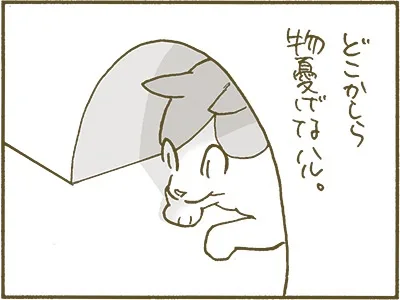 どこかしら
物憂げなハル。